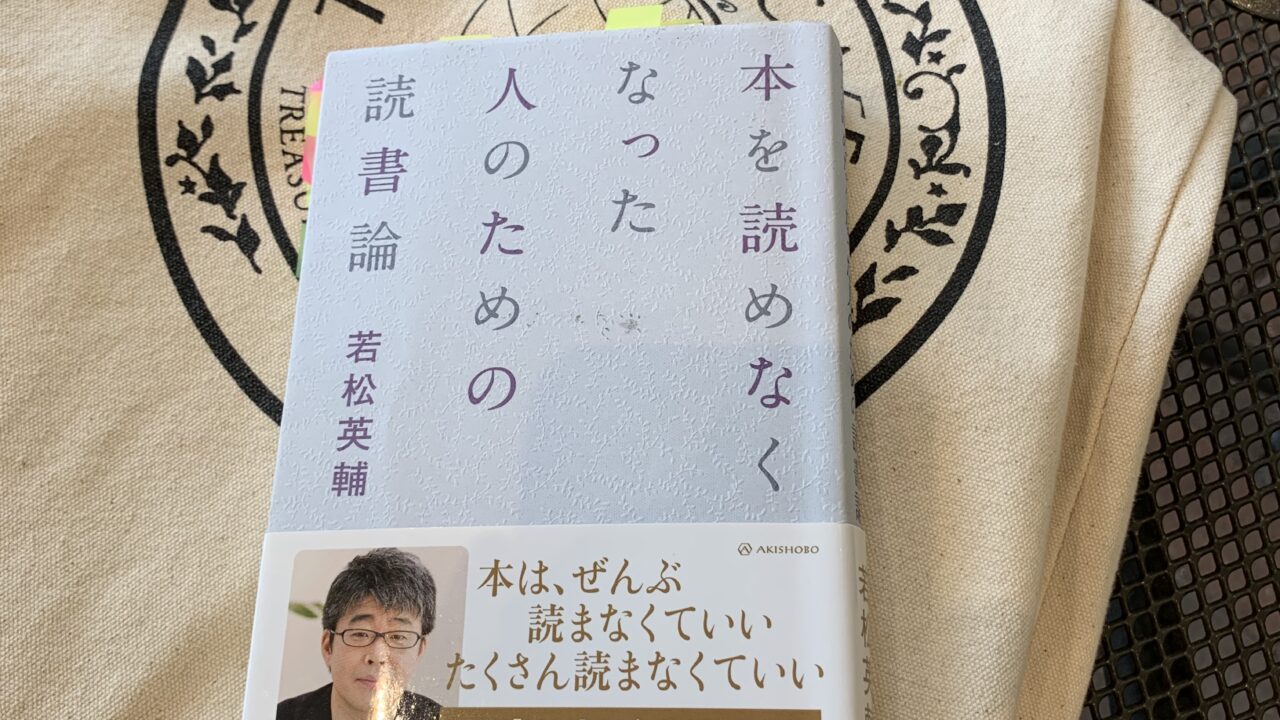 本を読めなく
なった
人のための
読書論
若松英輔
AKISHOBO
本は、ぜんぶ
読まなくていい
たくさん読まなくていい
若松英輔
TREASU